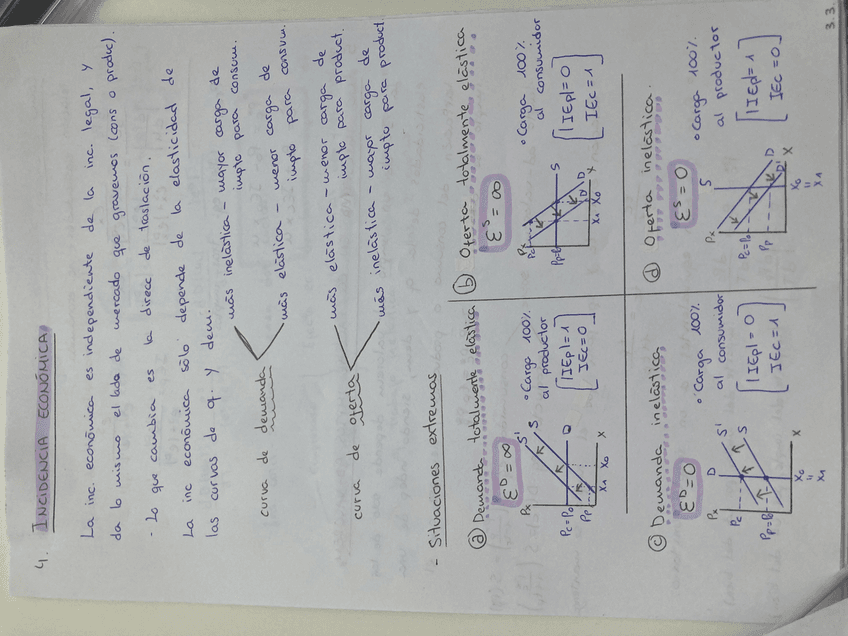 4. INCIDENCIA ECONÓMICA
La inc. económica es independiente de la inc. legal, y
da lo mismo el lado de mercado que gravemos (cons o produc).
- Lo que cambia es la direcc de traslación.
La inc económica sólo depende de la elasticidad de
las curvas de of. y dem.
curva de demanda
más inelástica - mayor carga de
impto para consum.
más elástica - menor carga de
impto para consum.
curva de oferta
más elástica - menor carga de
impto para product.
más inelástica - mayor carga de
impto para product
- Situaciones extremas
a) Demanda totalmente elástica
εD = ∞
• Carga 100%
al productor
|IEp| = 1
IEc = 0
Px
S'
S
Pc=P0
D
Pp
X1 X0
X
b) Oferta totalmente elástica
εS = ∞
• Carga 100%
al consumidor
|IEp| = 0
IEc = 1
Px
Pc
Pp=P0
S
D
D'
X1 X0
X
c) Demanda inelástica
εD = 0
• Carga 100%
al consumidor
|IEp| = 0
IEc = 1
Px
D
S'
S
Pc
Pp=P0
X0
=
X1
X
d) Oferta inelástica
εS = 0
• Carga 100%
al productor
|IEp| = 1
IEc = 0
Px
S
Pc=P0
Pp
D
D'
X0
=
X1
X
3.3.